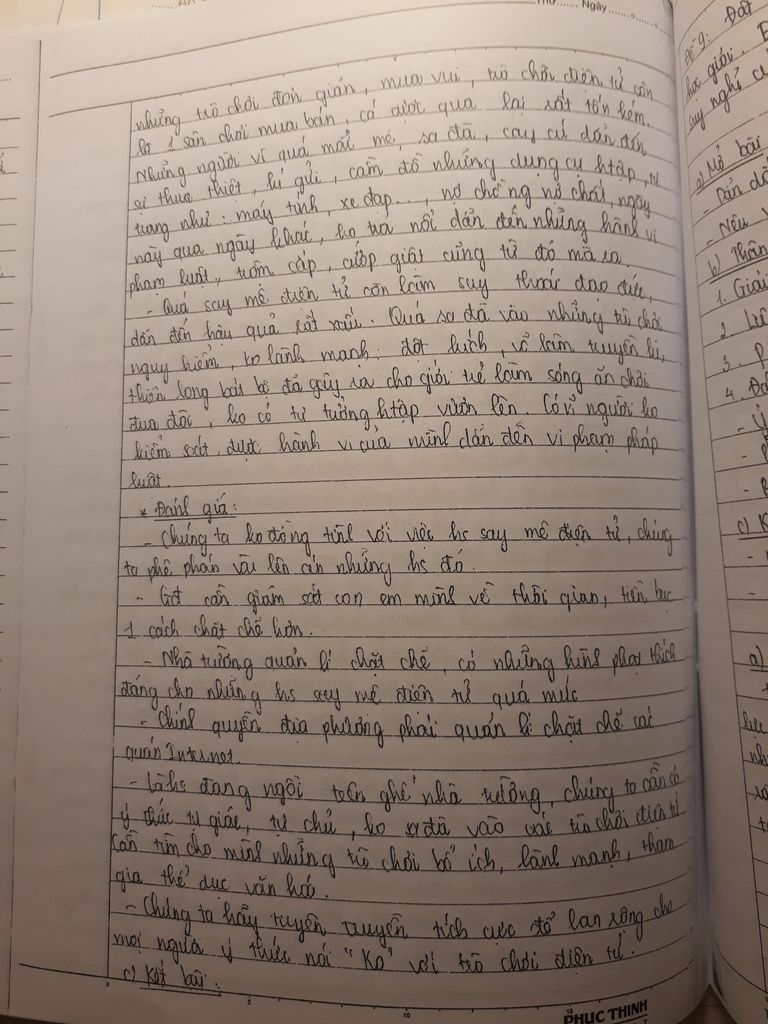 Thứ....... Ngày
những trò chơi đơn giản, mua vui, trò chơi điện tử còn
là 1 sân chơi mua bán, cá cược qua lại rất tốn kém.
Những người vì quá mải mê, sa đà, cay cú dẫn đến
sự thua thiệt, kí gửi, cầm đồ những dụng cụ htập, tư
trang như: máy tính, xe đạp..., nợ chồng nợ chất, ngày
này qua ngày khác, ko trả nổi dẫn đến những hành vi
phạm luật, trộm cắp, cướp giật cũng từ đó mà ra.
- Quá say mê điện tử còn làm suy thoái đạo đức,
dẫn đến hậu quả rất xấu. Quá sa đà vào những trò chơi
nguy hiểm, ko lành mạnh: đột kích, võ lâm truyền kì,
thiên long bát bộ đã gây ra cho giới trẻ làm sóng ăn chơi
đua đòi, ko có tư tưởng htập vươn lên. Có người ko
kiểm soát được hành vi của mình dẫn đến vi phạm pháp
luật.
* Đánh giá:
- Chúng ta ko đồng tình với việc hs say mê điện tử, chúng
ta phê phán và lên án những hs đó.
- Gđ cần giám sát con em mình về thời gian, tiền bạc
1 cách chặt chẽ hơn.
- Nhà trường quản lí chặt chẽ, có những hình phạt thích
đáng cho những hs say mê điện tử quá mức
- Chính quyền địa phương phải quản lí chặt chẽ các
quán Internet.
- Là hs đang ngồi trên ghế nhà trường, chúng ta cần có
ý thức tự giác, tự chủ, ko sa đà vào các trò chơi điện tử
Cần tìm cho mình những trò chơi bổ ích, lành mạnh, tham
gia thể dục văn hoá.
- Chúng ta hãy tuyên truyền tích cực để lan rộng cho
mọi người ý thức nói "Ko" với trò chơi điện tử.
c) Kết bài:
PHUC THINH
Đề 9: Đất
học giỏi.
suy nghĩ
a) Mở bài
- Dẫn dắ
- Nêu
b) Thân
1. Giải
2.
3.
4.
c) K
a)